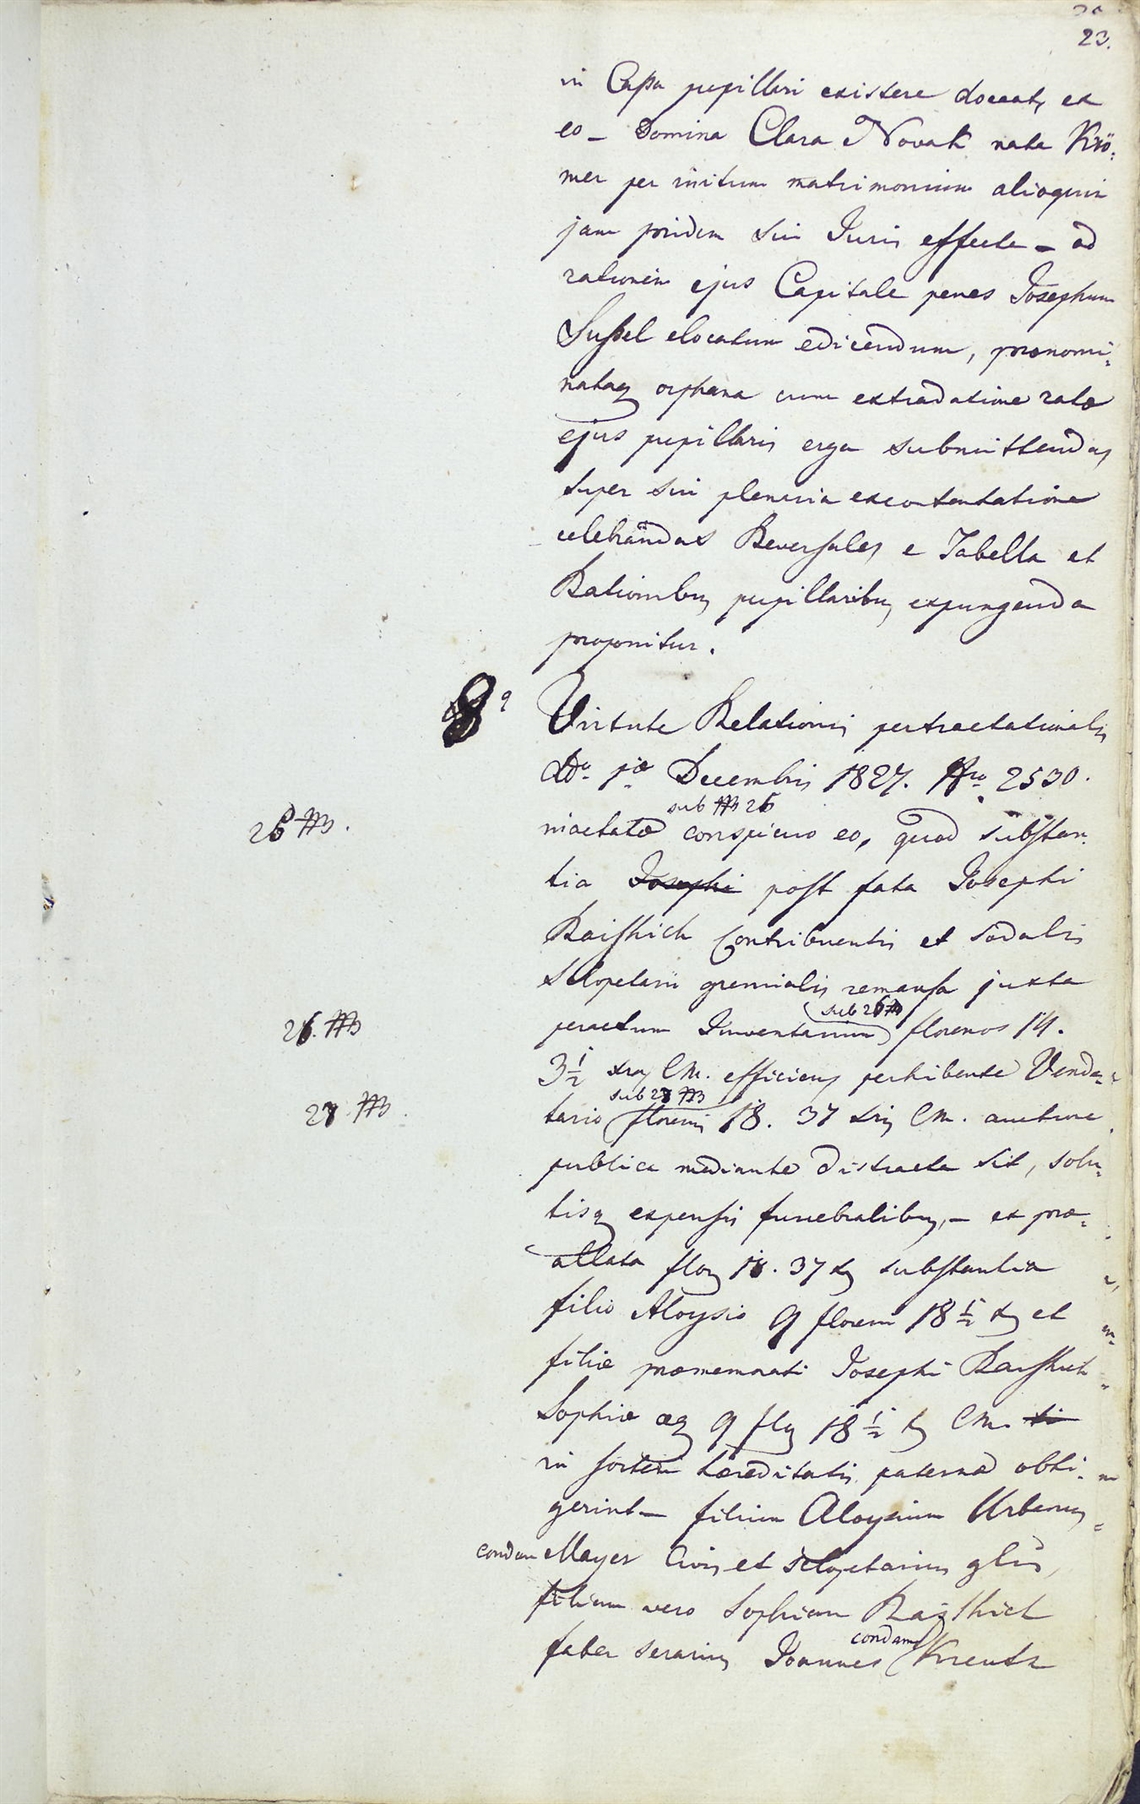 23.
in Cassa pupillari existere doceat, ex
eo – Domina Clara Novak nata Krö-
mer per initum matrimonium alioquin
jam pridem sui Juris effecta – ad
rationem ejus Capitale penes Josephum
Sussel elocatum edicendum, prænomi-
nataq orphana cum extradatione ratæ
ejus pupillaris erga submittendas
super sui plenaria excontentatione
celebrandas Reversales e Tabella et
Rationibus pupillaribus expungenda
proponitur.
8º Virtute Relationis pertractationalis
ddo 1æ Decembris 1827. Nro 2530.
sub 26
26
mactatæ conspicuo eo, quod substan-
tia Josephi post fata Josephi
Raishich Contribuentis et sodalis
Sclopetarii gremialis remansa juxta
sub 26
26.
peractum Inventarium florenos 14.
3 1/2 xros CM. efficiens perhibente Venda-
sub 27
27.
tario florenis 18. 37 xris CM. auctione
publica mediante distracta sit, solu-
tisq expensis funebralibus, – ex præ-
allata flor 18. 37 x substantia
filio Aloysio 9 floreni 18 1/2 x et
filiæ præmemorati Josephi Raishich
Sophiæ æq 9 fl 18 1/2 x CM. ti
in sortem hæreditatis paternæ obti-
gerint – filium Aloysium Urbanus
condam Mayer Civis et Sclopetarius glis,
filiam vero Sophiam Raishich
condam
faber serarius Joannes Kreutz